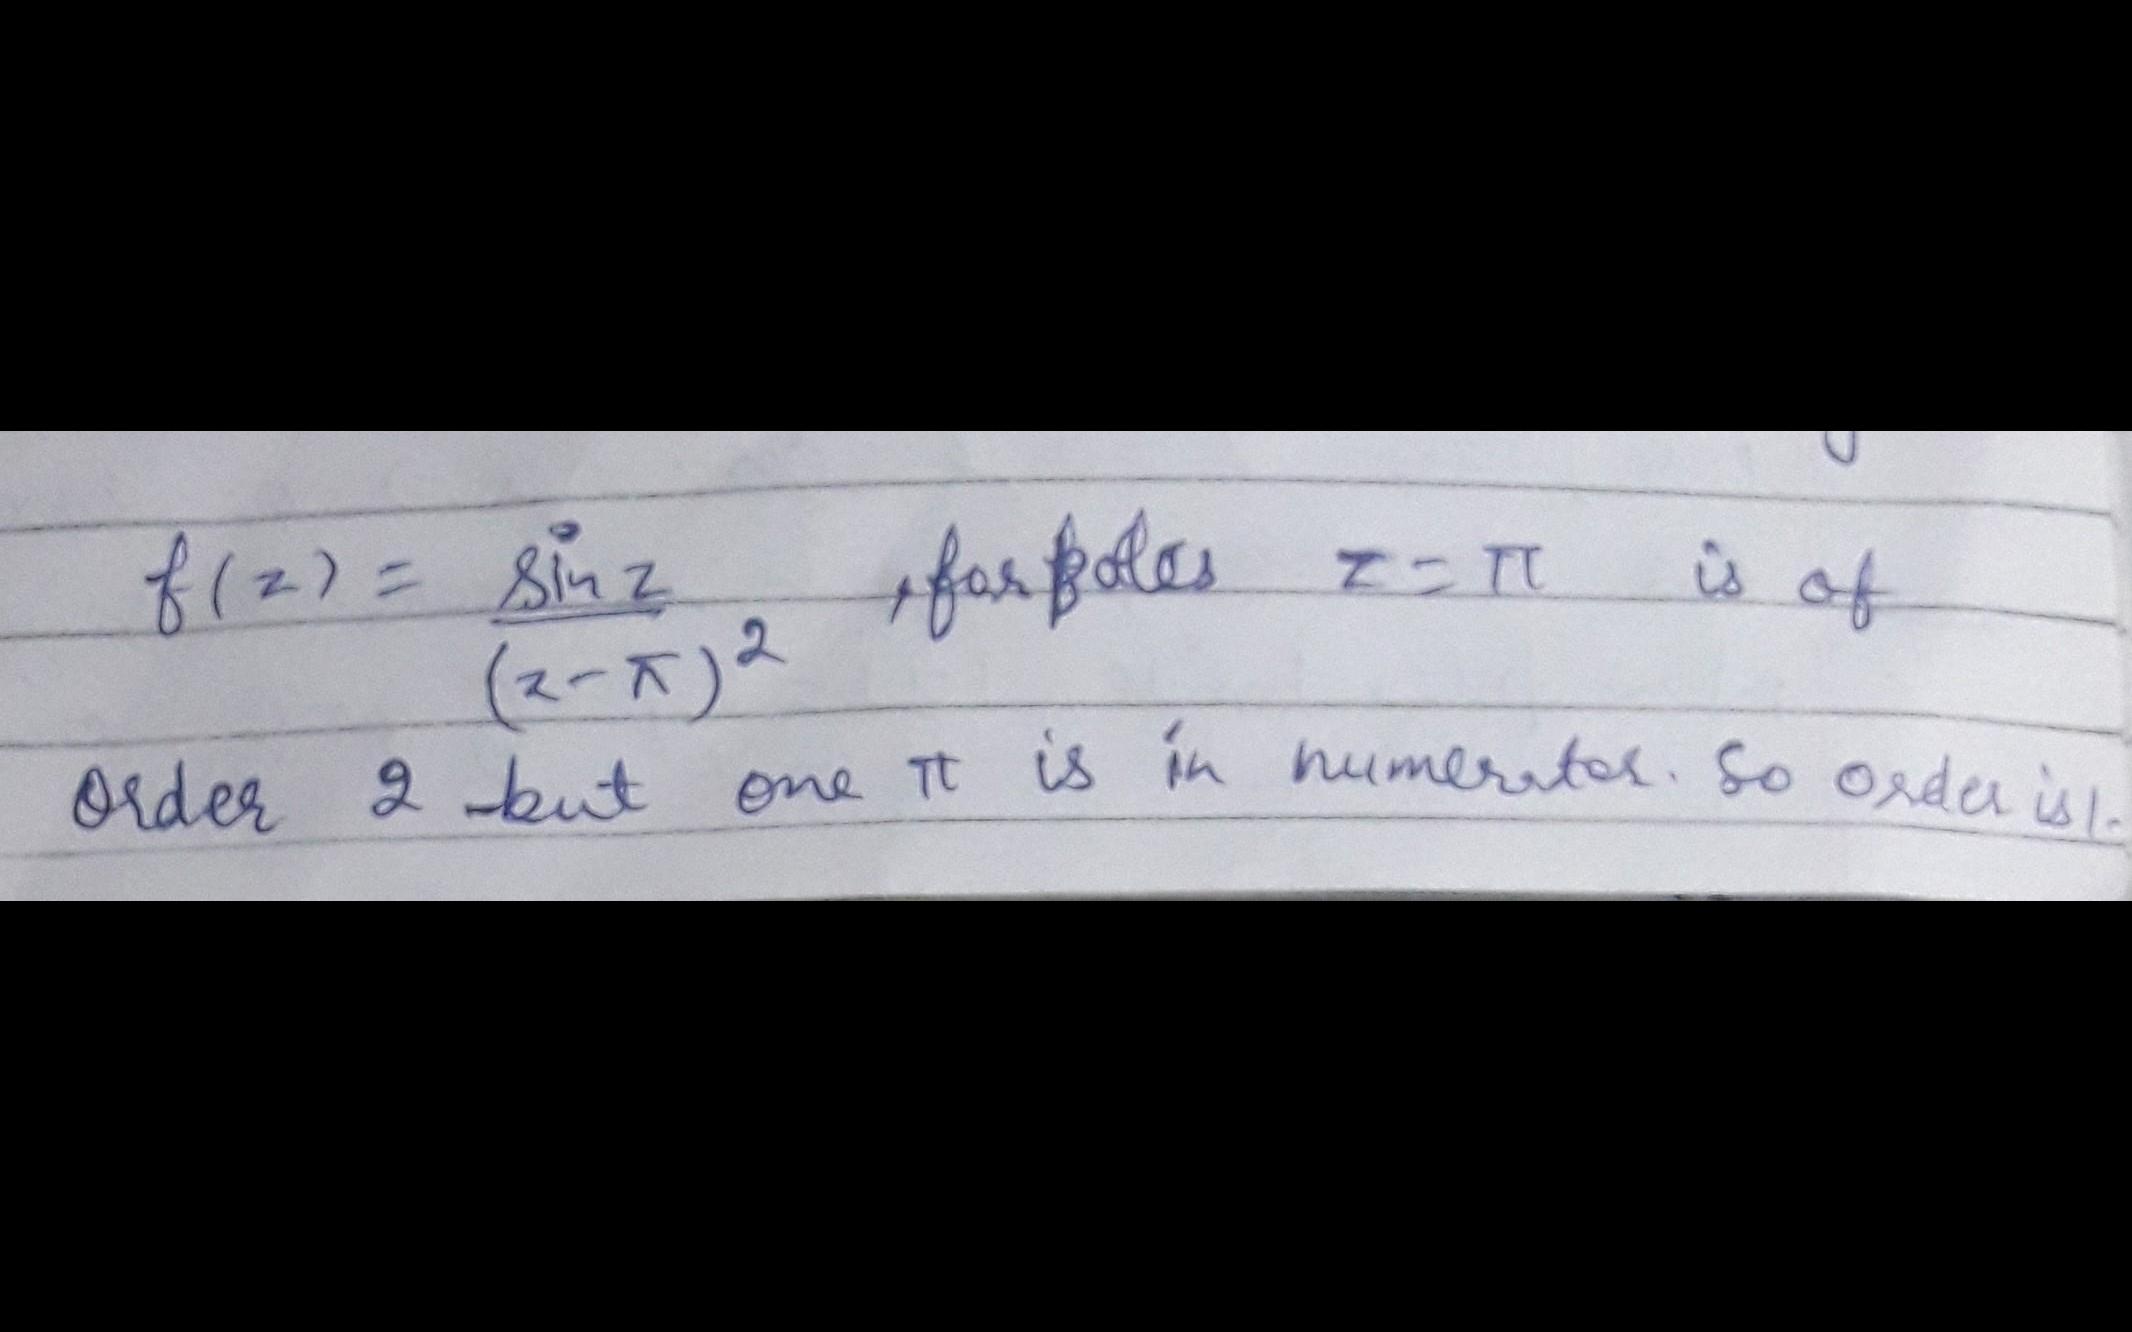 f(z) = sin z / (z-π)² , for poles z = π is of
Order 2 but one π is in numerator. So order is 1.